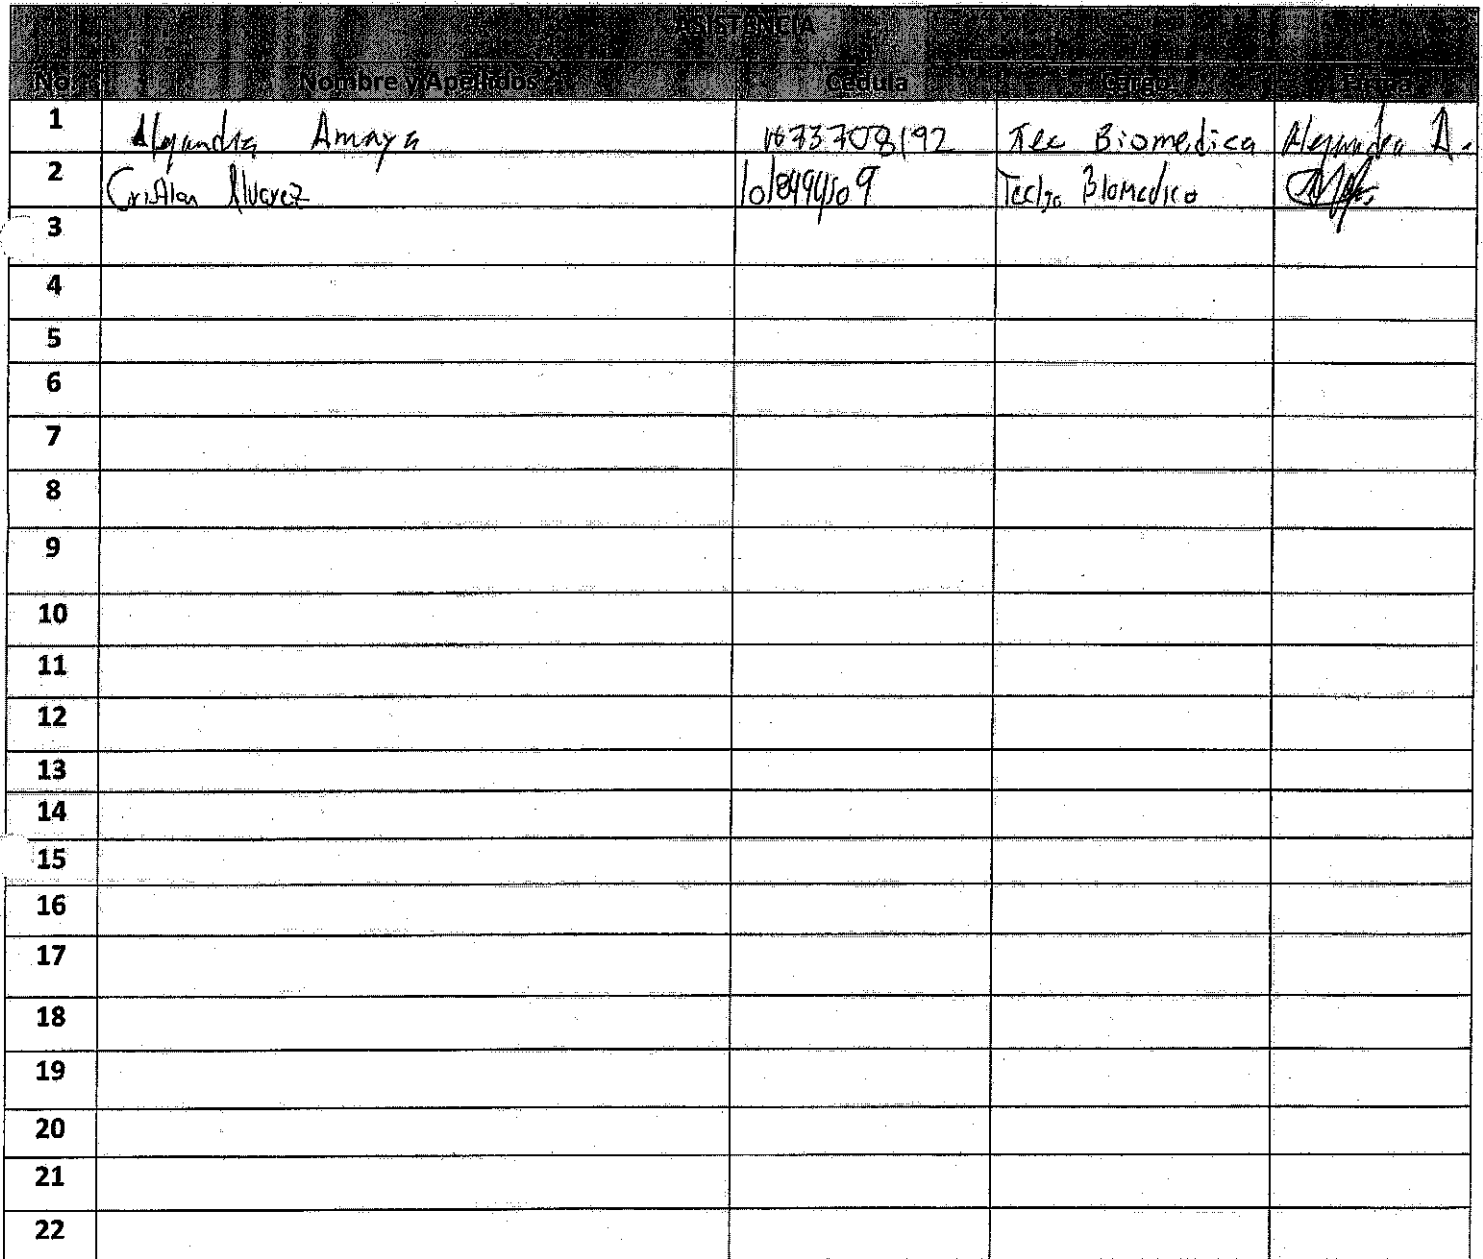 ASISTENCIA
No. Nombre y Apellidos Cedula Cargo Firma
1 Alejandra Amaya 1073708192 Tec Biomedica Alejandra A.
2 Cristian Alvarez Biomedico
3
4
5
6
7
8
9
10
11
12
13
14
15
16
17
18
19
20
21
22